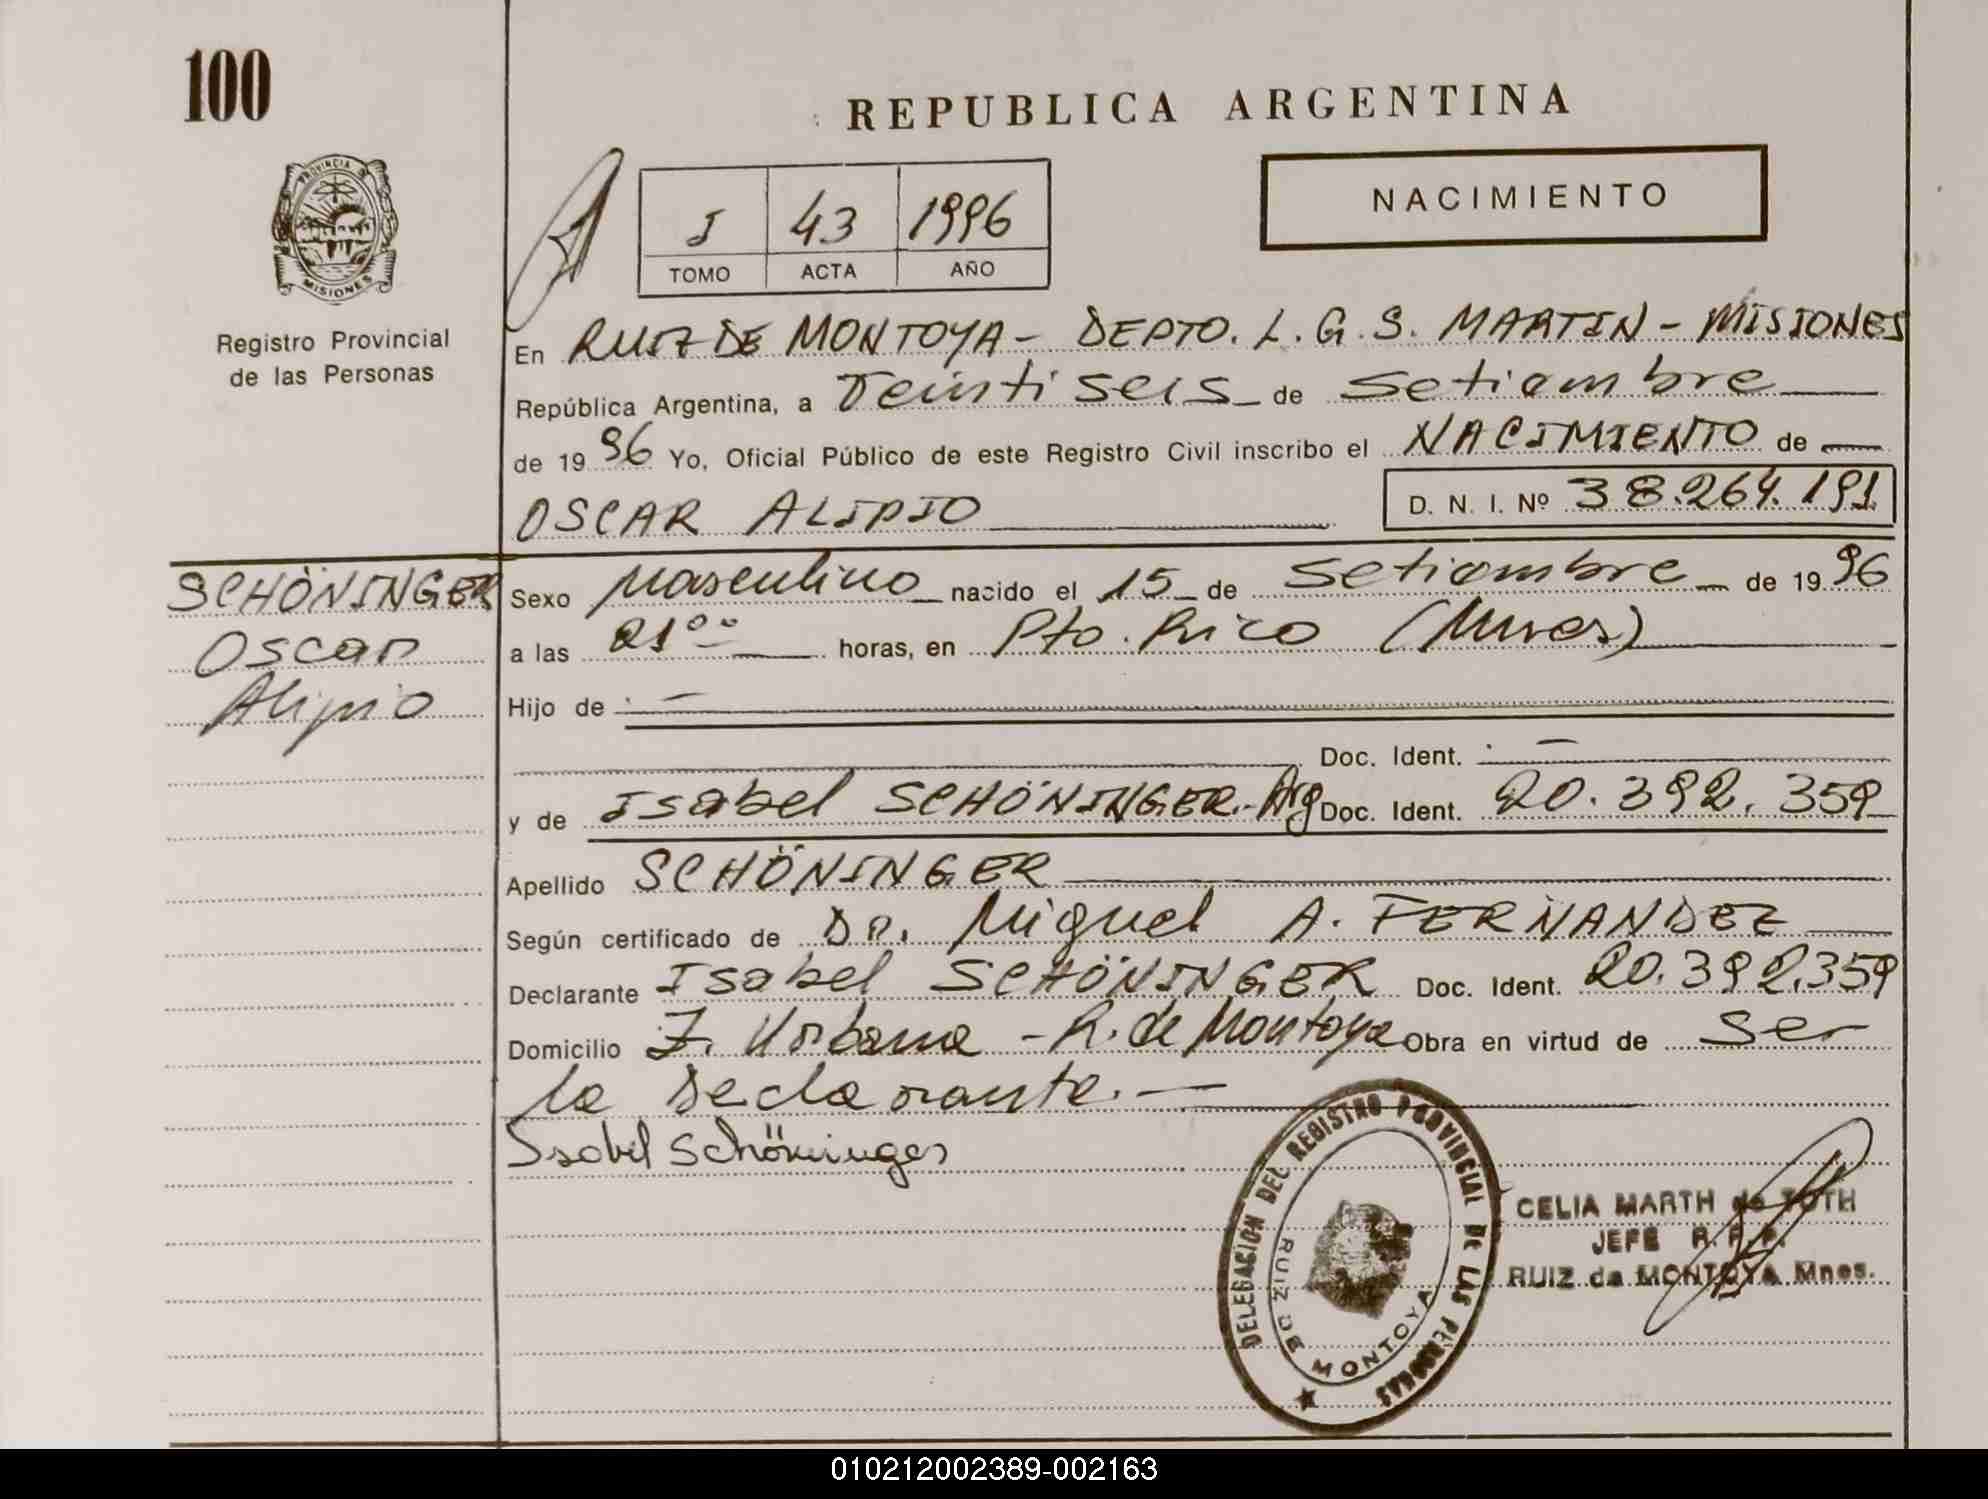 100
REPUBLICA ARGENTINA
PROVINCIA DE
MISIONES
Registro Provincial
de las Personas
I 43 1996
TOMO ACTA AÑO
NACIMIENTO
En RUIZ DE MONTOYA - DEPTO. L. G. S. MARTIN - MISIONES
República Argentina, a Veinti seis de Setiembre
de 1996 Yo, Oficial Público de este Registro Civil inscribo el NACIMIENTO de
OSCAR ALIPIO D. N. I. Nº 38.264.191
SCHÖNINGER
Oscar
Alipio
Sexo Masculino nacido el 15 de Setiembre de 1996
a las 21⁰⁰ horas, en Pto. Rico (Mnes)
Hijo de —
Doc. Ident. —
y de Isabel SCHÖNINGER-Arg Doc. Ident. 20.392.359
Apellido SCHÖNINGER
Según certificado de Dr. Miguel A. FERNANDEZ
Declarante Isabel SCHÖNINGER Doc. Ident. 20.392.359
Domicilio Z. Urbana - R. de Montoya Obra en virtud de Ser
la Declarante. —
Isabel Schöninger
DELEGACION DEL REGISTRO PROVINCIAL DE LAS PERSONAS
RUIZ DE MONTOYA
CELIA MARTH de TOTH
JEFE R. P. P.
RUIZ de MONTOYA Mnes.
010212002389-002163